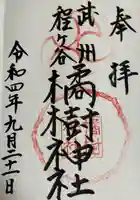 奉拝
武州
程ヶ谷
橘樹神社
令和四年九月二十一日